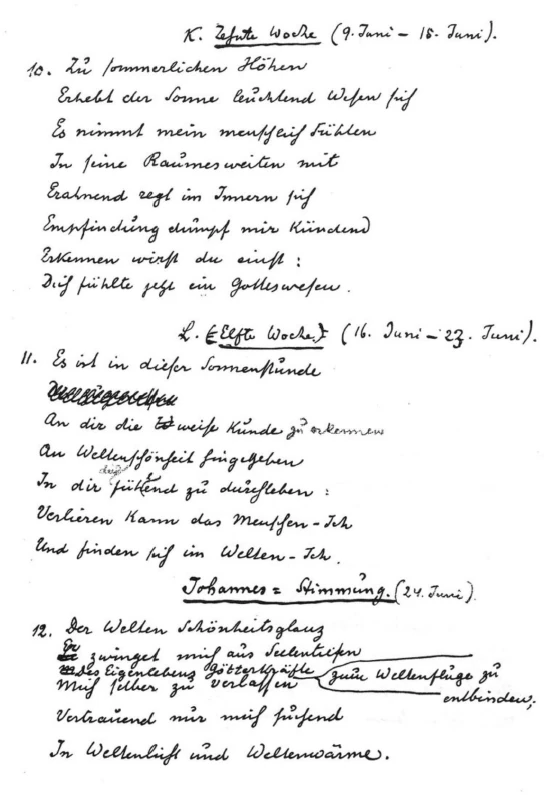 K. Zehnte Woche (9. Juni – 15. Juni).
10. Zu sommerlichen Höhen
Erhebt der Sonne leuchtend Wesen sich
Es nimmt mein menschlich Fühlen
In seine Raumesweiten mit
Erahnend regt im Innern sich
Empfindung dumpf mir kündend
Erkennen wirst du einst:
Dich fühlte jetzt ein Gotteswesen.
L. (Elfte Woche.) (16. Juni – 23. Juni).
11. Es ist in dieser Sonnenstunde
An dir die weise Kunde zu erkennen
An Weltenschönheit hingegeben
In dir dich fühlend zu durchleben:
Verlieren kann das Menschen-Ich
Und finden sich im Welten-Ich.
Johannes=Stimmung. (24. Juni).
12. Der Welten Schönheitsglanz
Er zwinget mich aus Seelentiefen
Des Eigenlebens Götterkräfte zum Weltenfluge zu
entbinden;
Mich selber zu verlassen
Vertrauend nur mich suchend
In Weltenlicht und Weltenwärme.